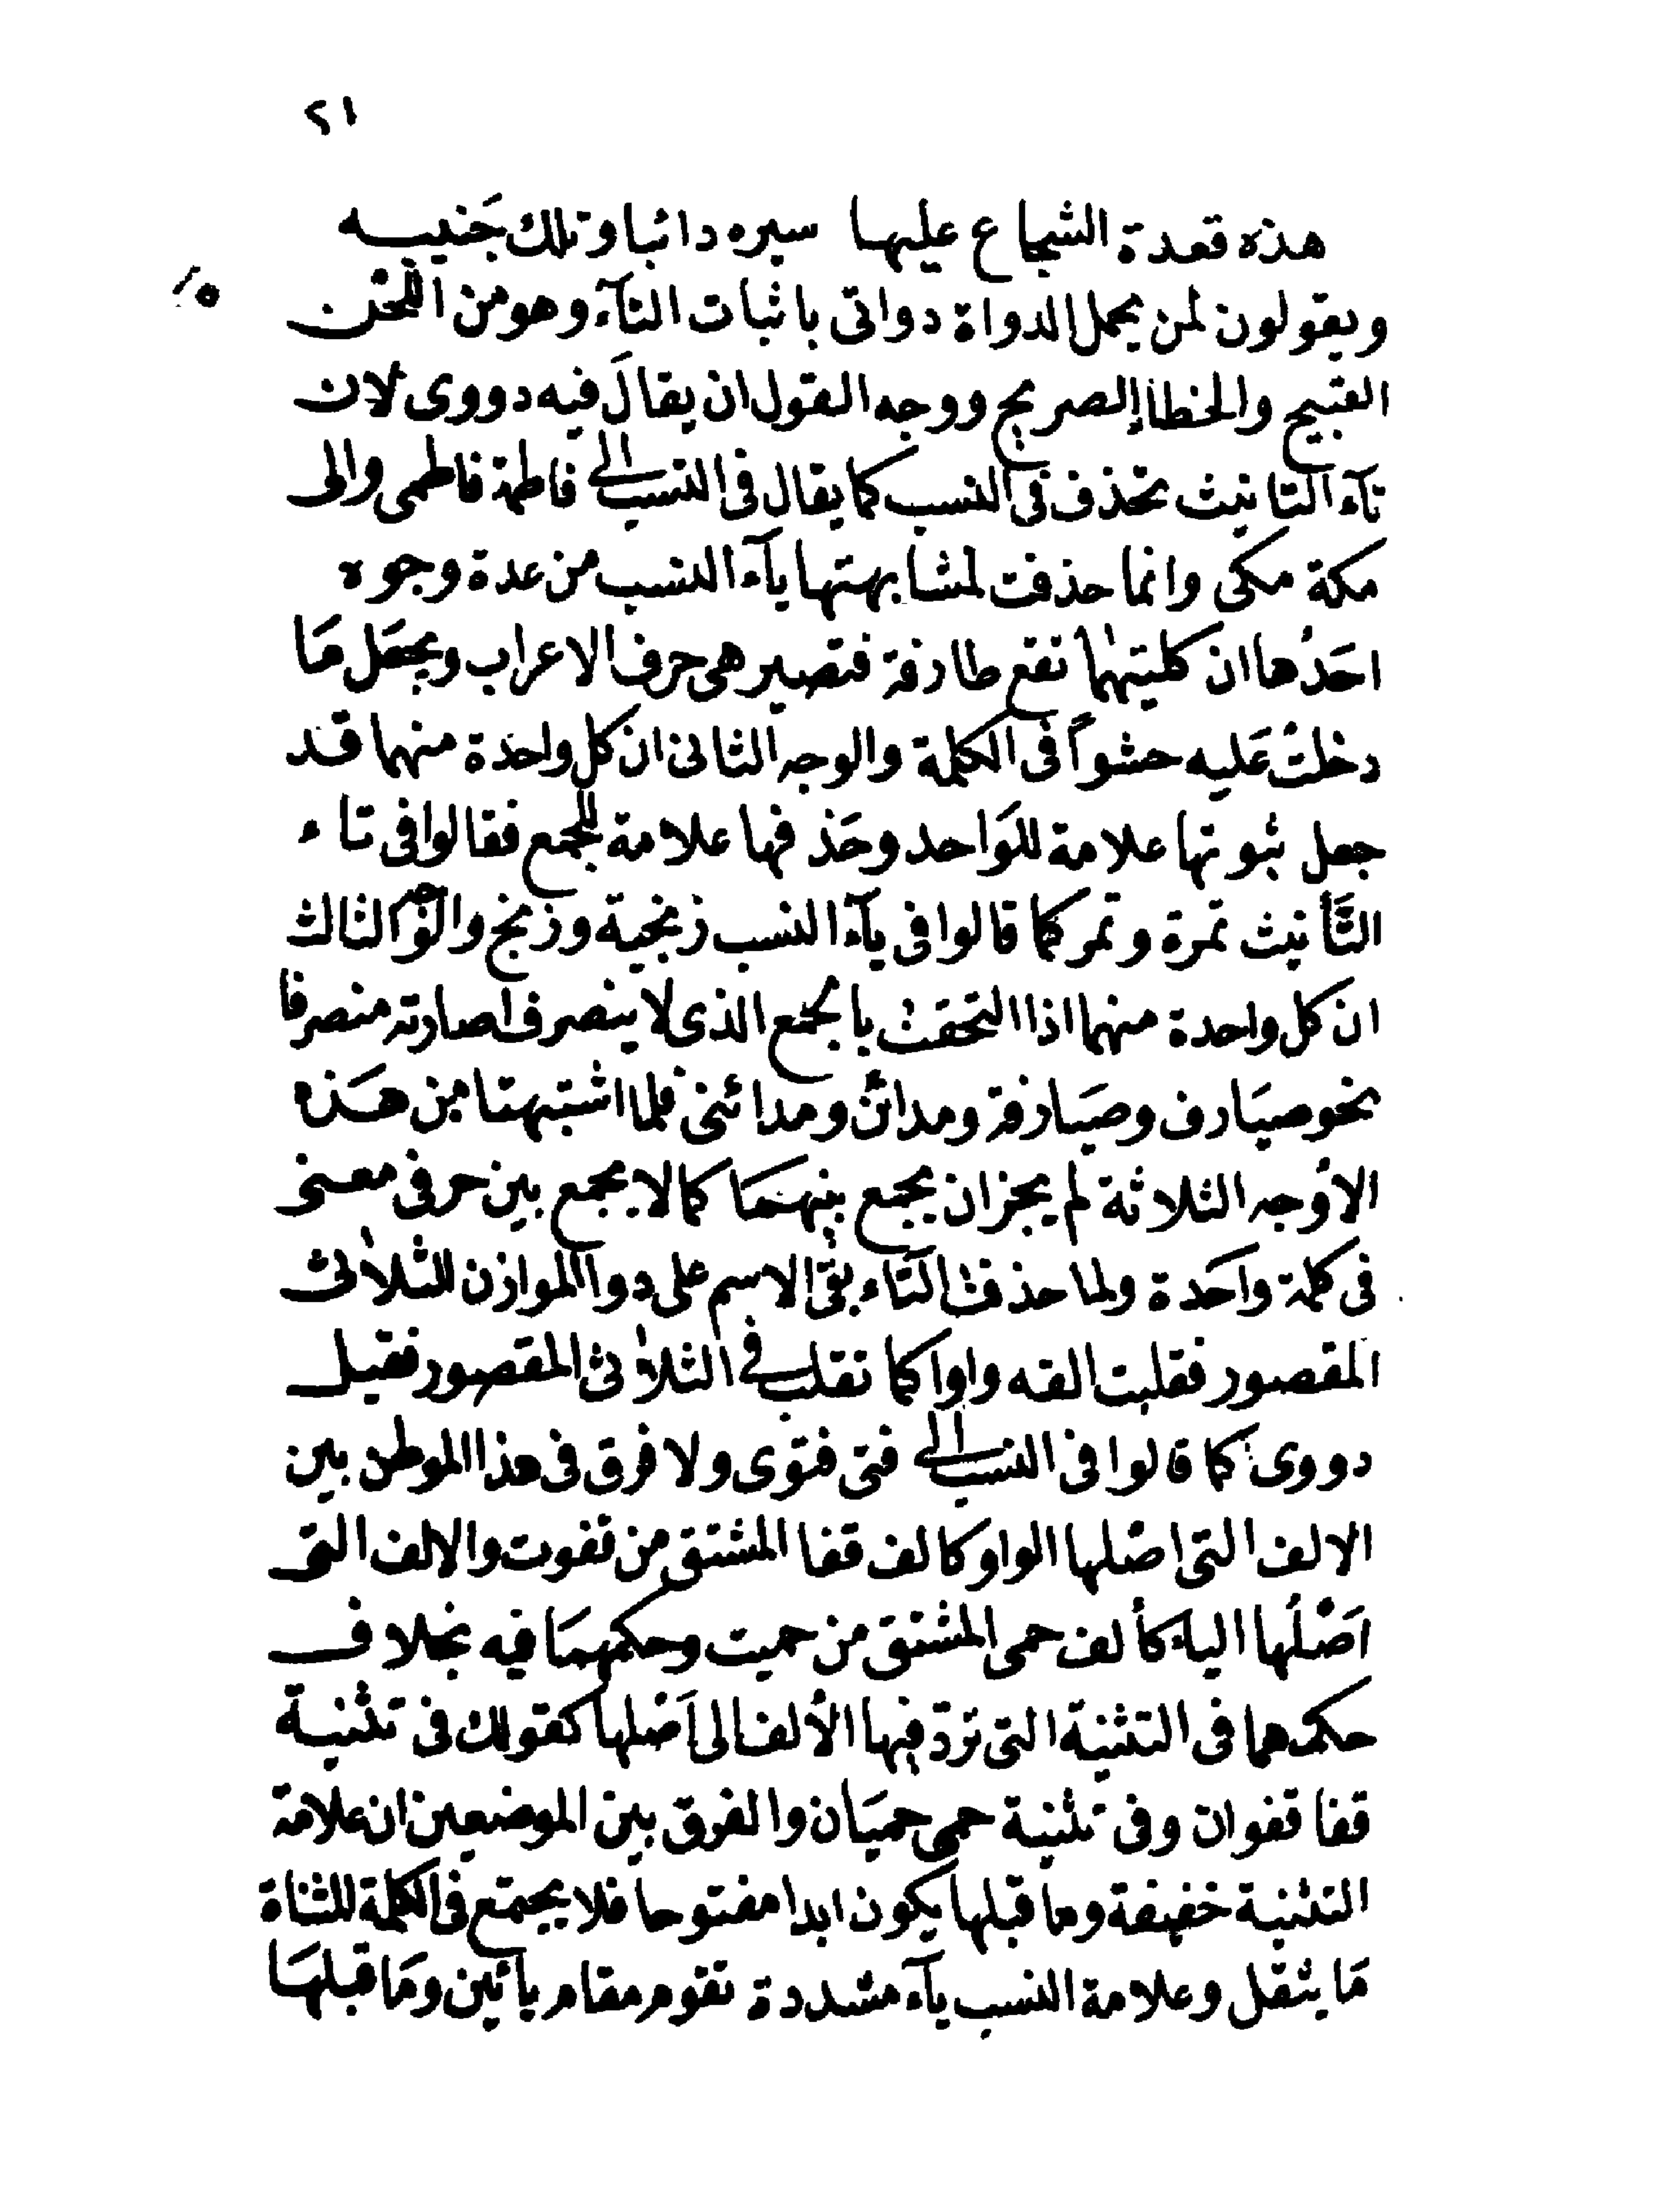 ٢١
هذه قعدة الشجاع عليها سيره دائبا وتلك جَنيبه
ويقولون لمن يحمل الدواة دواتى باثبات التآء وهو من اللحن
٥
القبيح والخطاء الصريح ووجه القول ان يقالَ فيه دووى لان
تآء التانيث تحذف فى النسب كما يقال فى النسب الى فاطمة فاطمى والى
مكة مكى وانما حذفت لمشابهتها يآء النسب من عدة وجوه
احَدُها ان كليتهما تقع طارفة فتصير هى حرف الاعراب ويجعَل مَا
دخلتْ عَليه حشواً فى الكلمة والوجه الثانى ان كل واحدة منهما قد
جعل ثبوتها علامة للوَاحد وحَذفها علامة للجمع فقالوا فى تاء
التَّأنيث تمرة وتمر كما قالوا فى يآء النسب زنجية وزنج والوجه الثالث
ان كل واحدة منهما اذا التحقت بالجمع الذى لا ينصرف اصارته منصرفا
نحو صيَارف وصيَارفة ومدائن ومدائنى فلما اشتبهتا من هَذه
الأوجه الثلاثة لم يجز ان يجمع بينهمَا كما لا يجمع بين حرفى معنى
فى كلمة واحَدة ولما حذفت التَاء بقى الاسم على دوا الموازن للثلاثى
المقصور فقلبت الفه واوا كما تقلب فى الثلاثى المقصور فقيل
دووى كما قالوا فى النسب الى فتى فتوى ولا فرق فى هذا الموطن بين
الالف التى اصْلها الواو كالف قفا المشتق من قفوت والالف التى
اَصْلُها الياء كألف حمى المشتق من حميت وحكمهمَا فيه بخلاف
حكمهما فى التثنية التى تردّ فيها الألف الى اَصْلها كقولك فى تثنية
قفا قفوان وفى تثنية حمى حميَان والفرق بين الموضعين ان علامة
التثنية خفيفة وما قبلها يكون ابدا مفتوحا فلا يجتمع فى الكلمة المثناة
مَا يثقل وعلامة النسب يآء مشددة تقوم مقام يائين ومَا قبلهَا